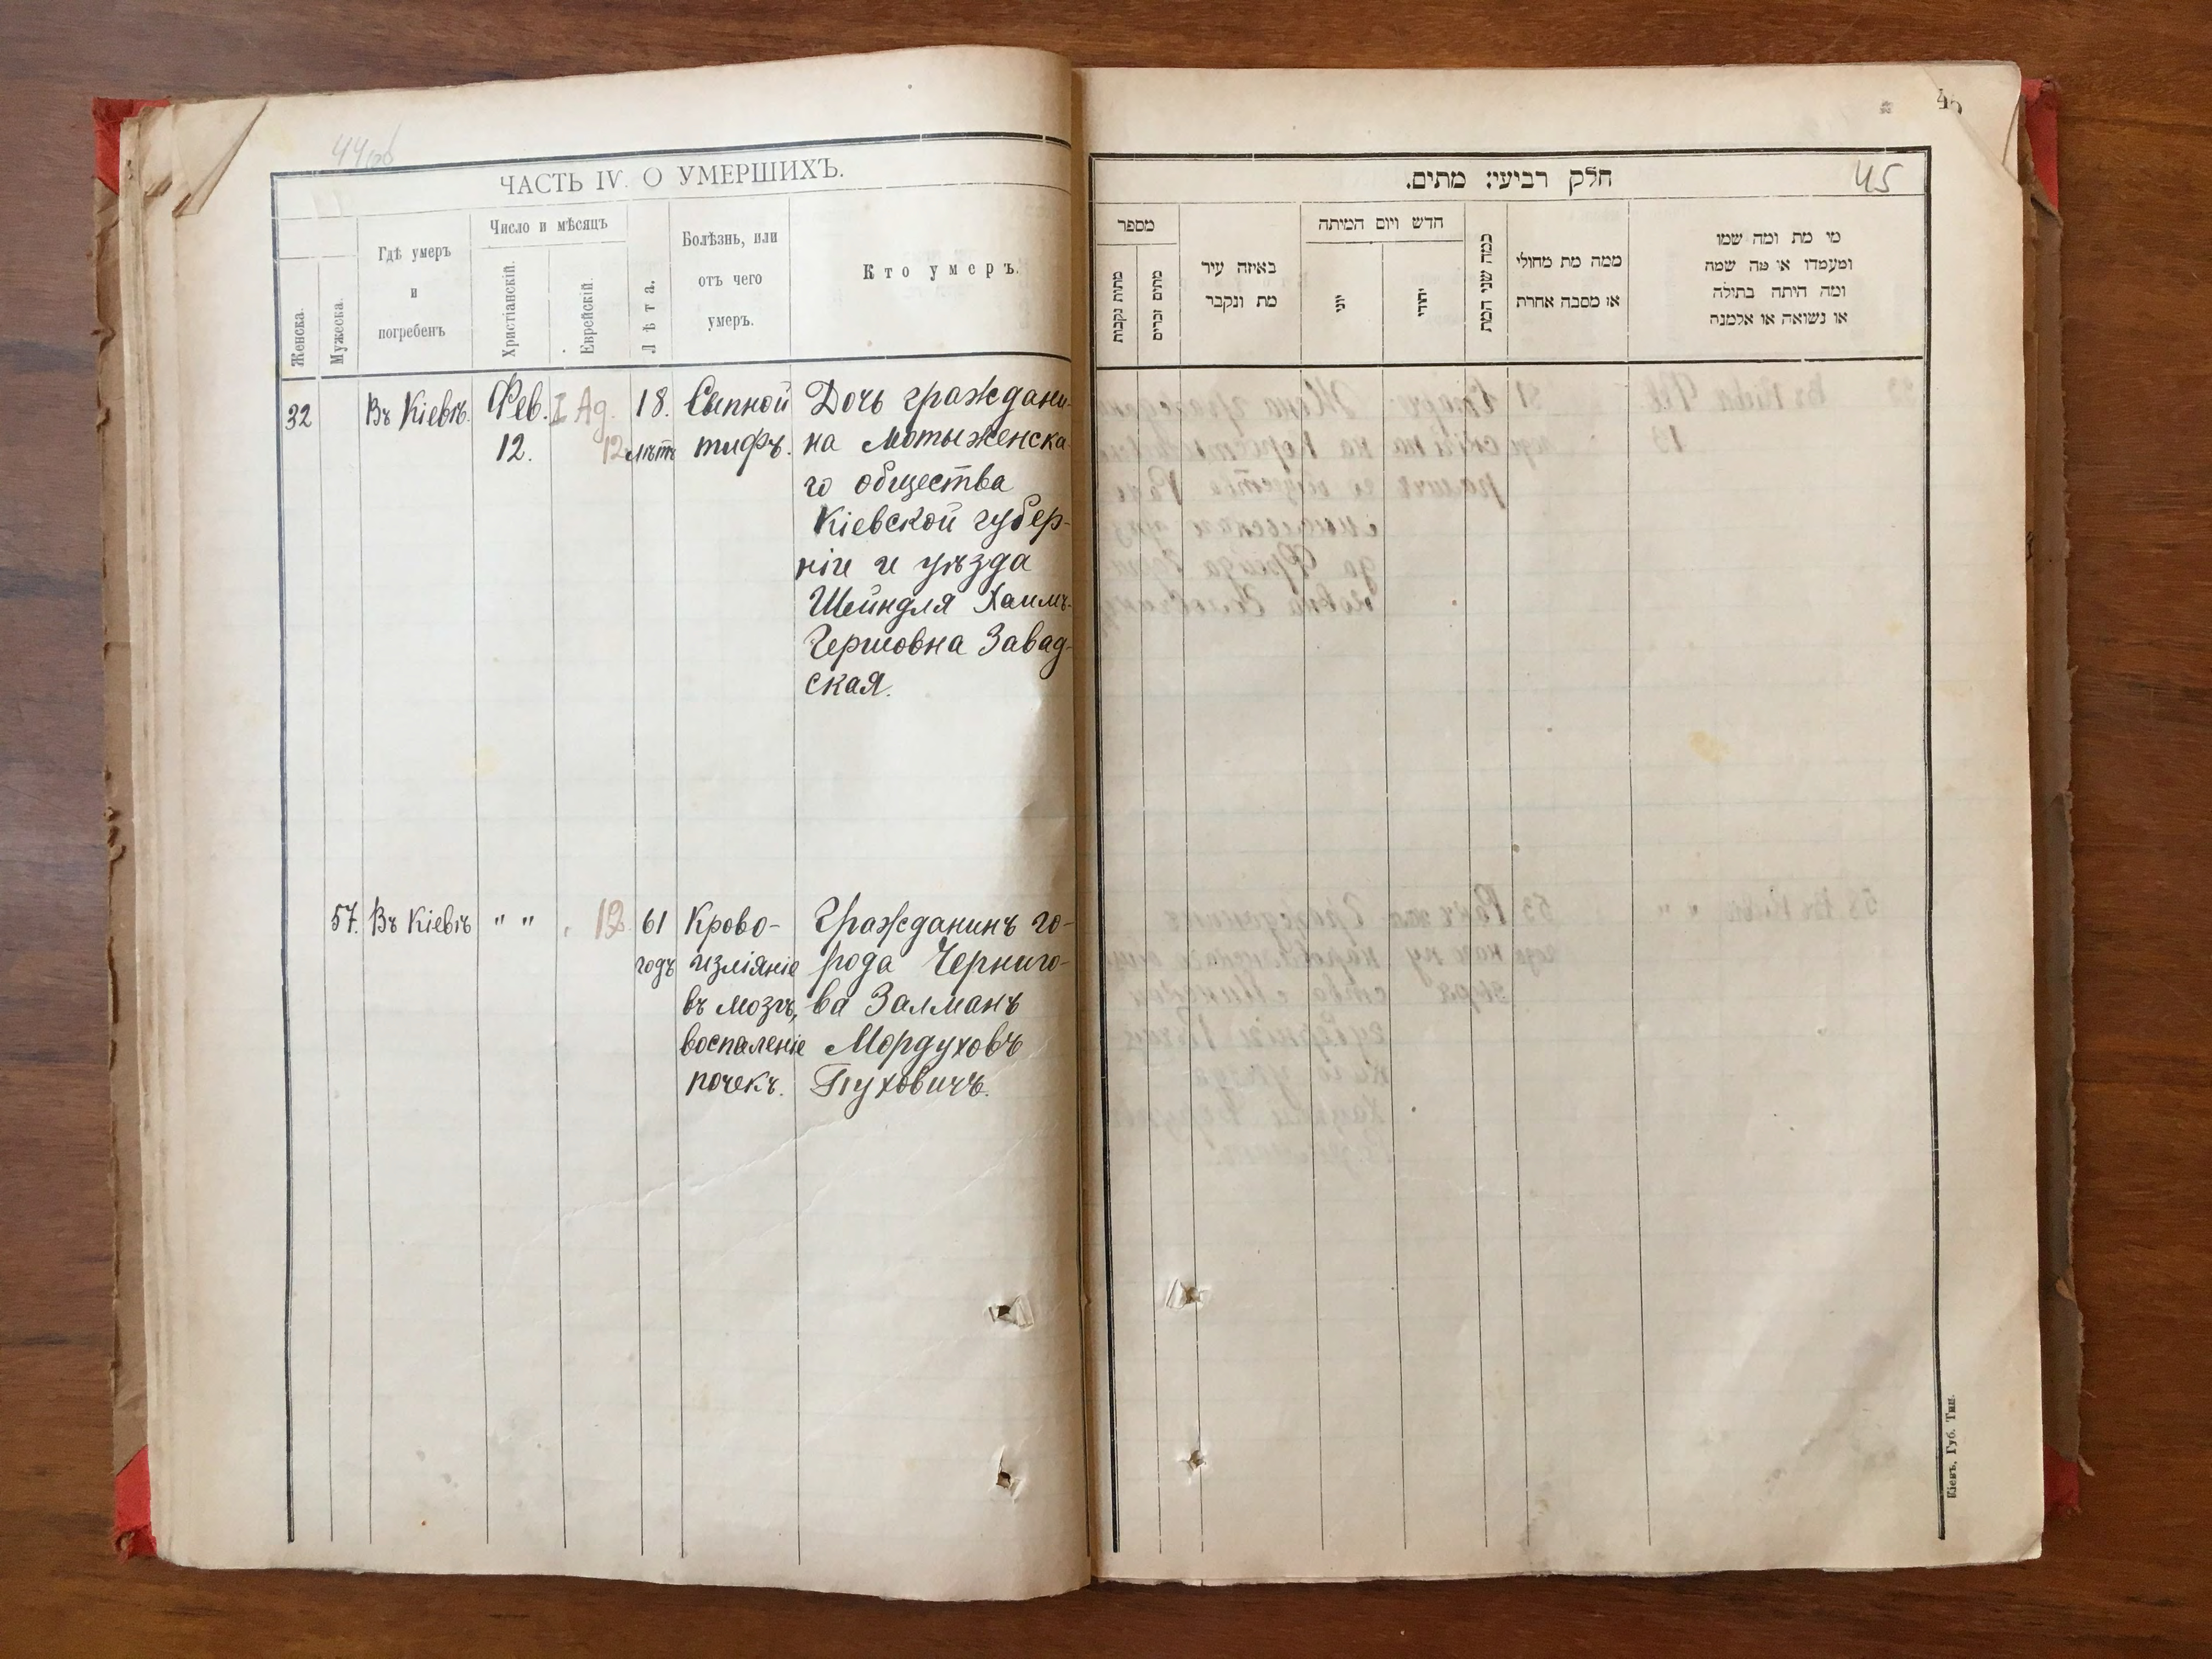 44об
ЧАСТЬ IV. О УМЕРШИХЪ.
Женска.
Мужеска.
Гдѣ умеръ
и
погребенъ
Число и мѣсяцъ
Христіанскій.
Еврейскій.
Лѣта.
Болѣзнь, или
отъ чего
умеръ.
Кто умеръ.
32
Въ Кіевѣ.
Фев.
12.
I Ад.
12
18.
лѣтъ
Сыпной
тифъ.
Дочь граждани-
на Мотыженска-
го общества
Кіевской губер-
ніи и уѣзда
Шейндля Хаимъ-
Гершовна Завад-
ская.
57.
Въ Кіевѣ
" "
61
годъ
Крово-
изліяніе
въ мозгъ,
воспаленіе
почекъ.
Гражданинъ го-
рода Черниго-
ва Залманъ
Мордуховъ
Глуховичъ.
45
חלק רביעי: מתים.
45
מספר
מתות נקבות
מתים זכרים
באיזה עיר
מת ונקבר
חדש ויום המיתה
יוני
יהודי
כמה שני המת
ממה מת מחולי
או מסבה אחרת
מי מת ומה שמו
ומעמדו או מה שמה
ומה היתה בתולה
או נשואה או אלמנה
Кіевъ, Губ. Тип.